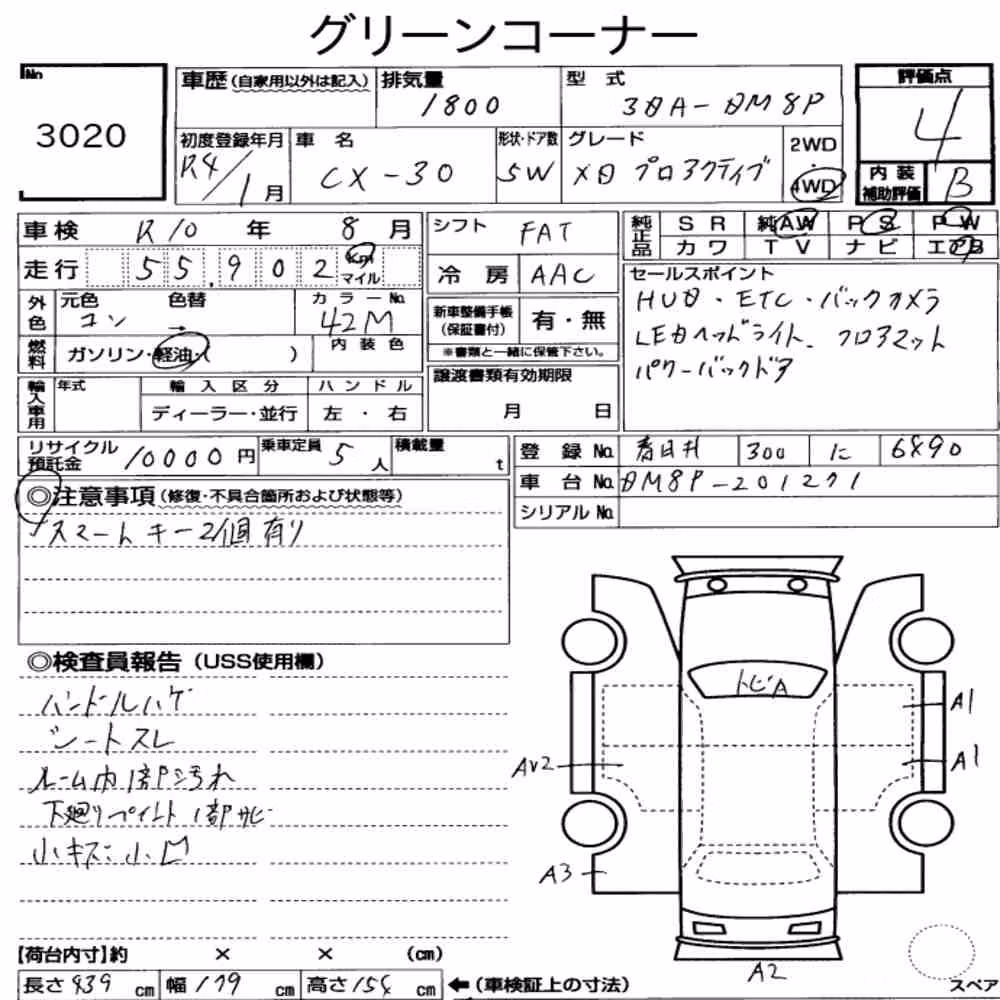 グリーンコーナー
No
3020
車歴（自家用以外は記入）
排気量
1800
型 式
3DA-DM8P
評価点
4
初度登録年月
R4/1月
車 名
CX-30
形状・ドア数
5W
グレード
XD プロアクティブ
2WD
・
4WD
内 装
補助評価
B
車検 R10 年 8 月
シフト
FAT
純正品
S R
純AW
P S
P W
カ ワ
T V
ナ ビ
エアB
走行 55,902 Km
マイル
冷 房 AAC
セールスポイント
HUD・ETC・バックカメラ
LEDヘッドライト、フロアマット
パワーバックドア
外色
元色
コン
色替
→
カラーNo.
42M
新車整備手帳
（保証書付）
有・無
※書類と一緒に保管下さい。
燃料
ガソリン・軽油・（ ）
内 装 色
譲渡書類有効期限
月 日
輸入車用
年式
輸 入 区 分
ディーラー・並行
ハ ン ド ル
左 ・ 右
リサイクル
預託金
10000円
乗車定員
5人
積載量
t
登 録 No. 春日井 300 に 6490
車 台 No. DM8P-201271
シリアル No.
◎注意事項（修復・不具合箇所および状態等）
スマートキー2個有り
◎検査員報告（USS使用欄）
ハンドルハゲ
シートスレ
ルーム内1部汚れ
下廻りペイント1部サビ
小キズ小凹
トビA
A1
A1
AV2
A3
A2
【荷台内寸】約 × × (cm)
長さ 439 cm
幅 179 cm
高さ 154 cm
←（車検証上の寸法）
スペア